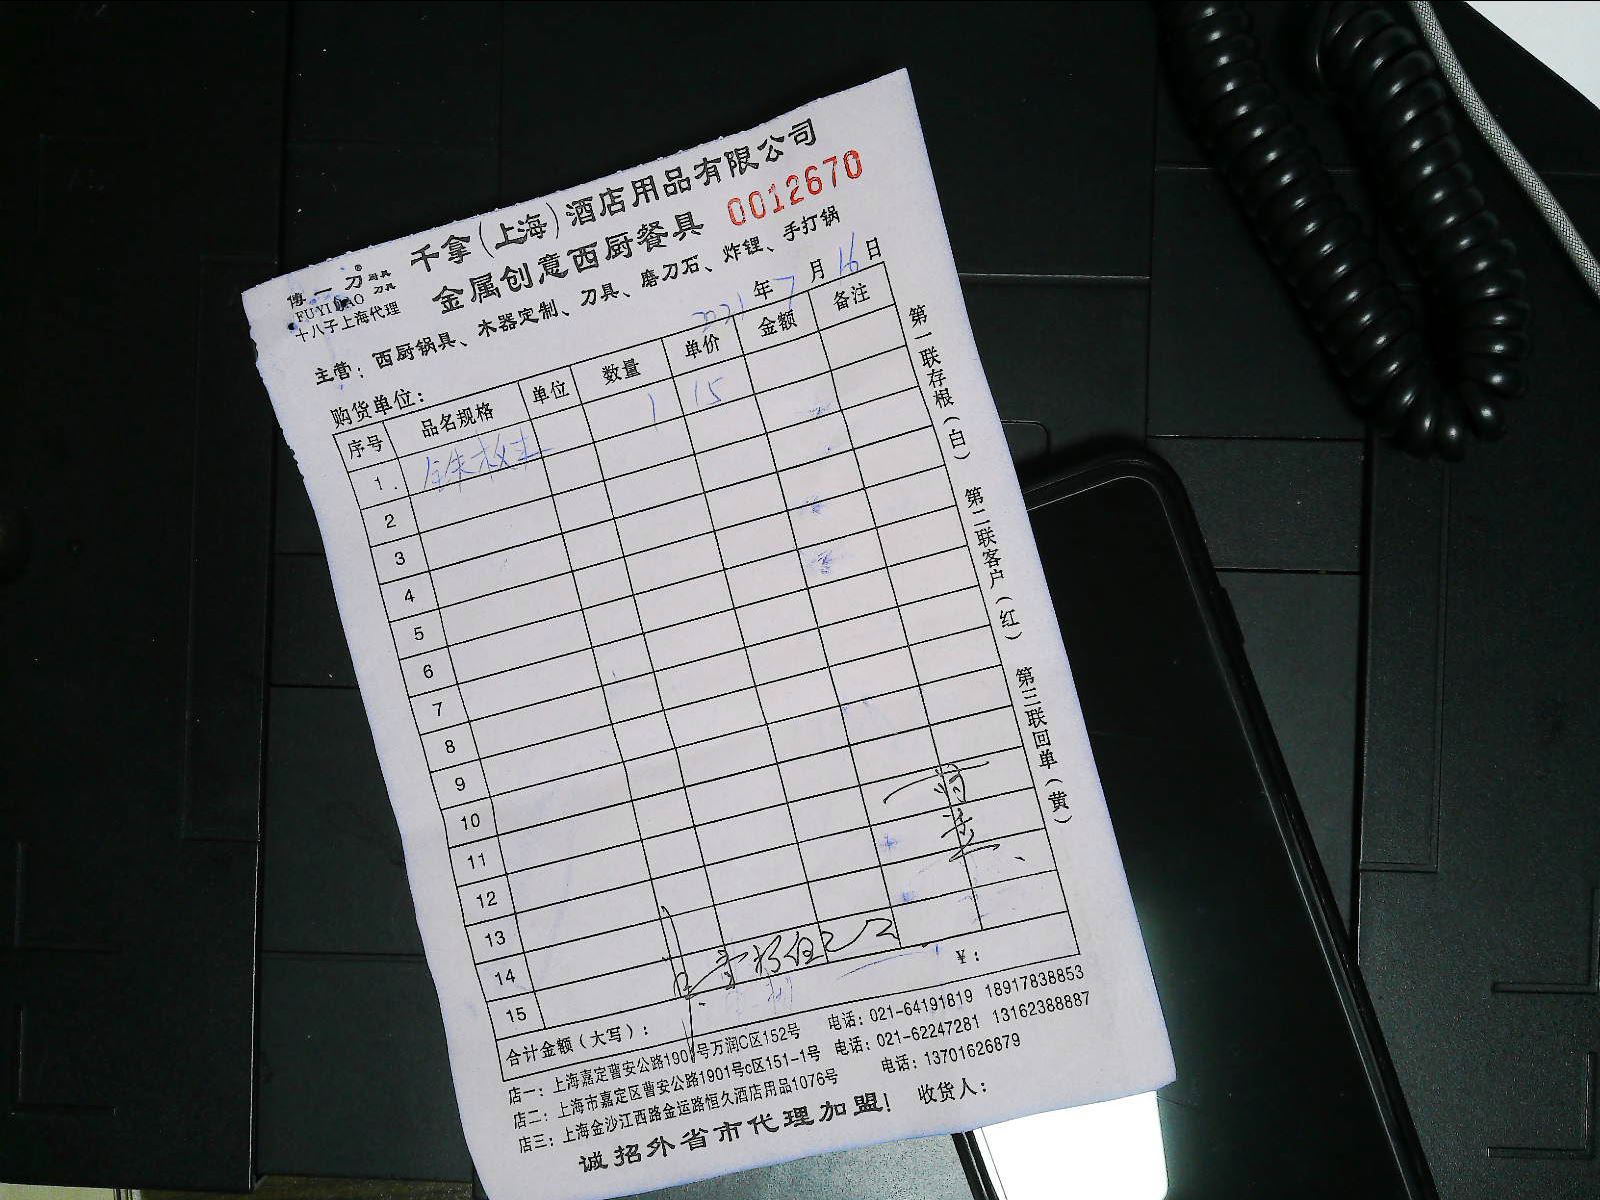 千拿(上海)酒店用品有限公司
金属创意西厨餐具 0012670
傅一刀 ® 厨具 刀具
FUYIDAO
十八子上海代理
主营：西厨锅具、木器定制、刀具、磨刀石、炸锂、手打锅
购货单位： 2021年7月16日
序号 品名规格 单位 数量 单价 金额 备注
1 1 15
2
3
4
5
6
7
8
9
10
11
12
13
14
15
合计金额（大写）： ¥：
店一：上海嘉定曹安公路1901号万润C区152号 电话：021-64191819 18917838853
店二：上海市嘉定区曹安公路1901号c区151-1号 电话：021-62247281 13162388887
店三：上海金沙江西路金运路恒久酒店用品1076号 电话：13701626879
诚招外省市代理加盟！ 收货人：
第一联存根（白） 第二联客户（红） 第三联回单（黄）